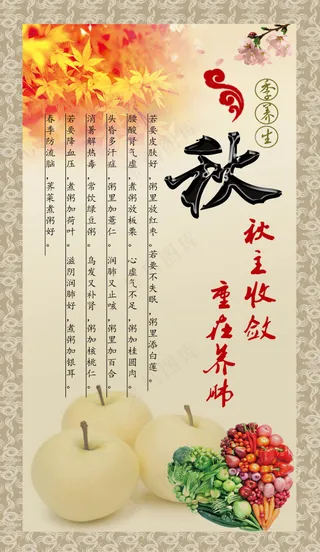 秋
季养生
秋主收敛
重在养肺
若要皮肤好,粥里放红枣。若要不失眠,粥里添白莲。
腰酸肾气虚,煮粥放板栗。心虚气不足,粥加桂圆肉。
头昏多汗症,粥里加薏仁。润肺又止咳,粥里加百合。
消暑解热毒,常饮绿豆粥。乌发又补肾,粥加核桃仁。
若要降血压,煮粥加荷叶。滋阴润肺好,煮粥加银耳。
春季防流脑,荠菜煮粥好。